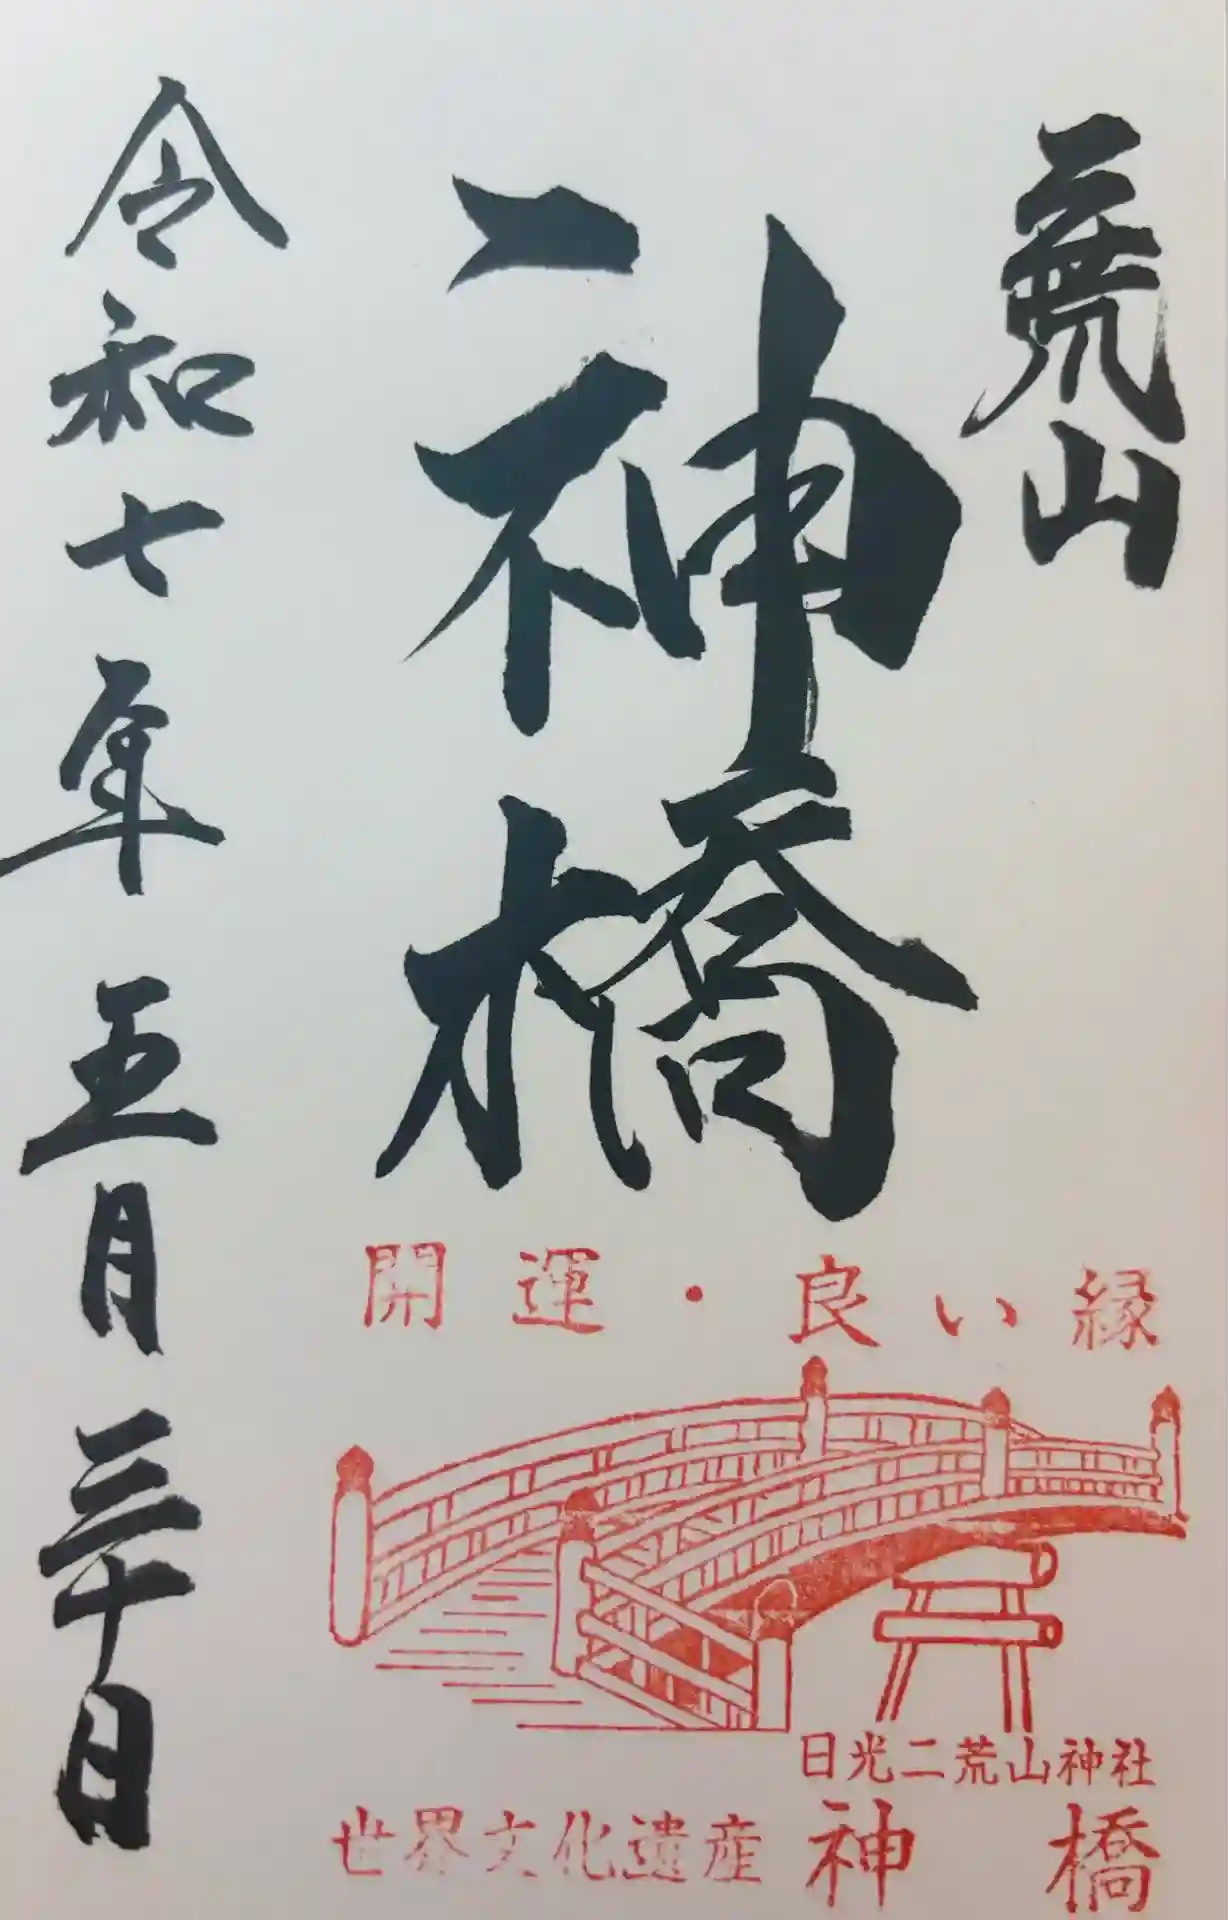 二荒山
神橋
令和七年 五月三十日
開運・良い縁
日光二荒山神社
世界文化遺産 神橋